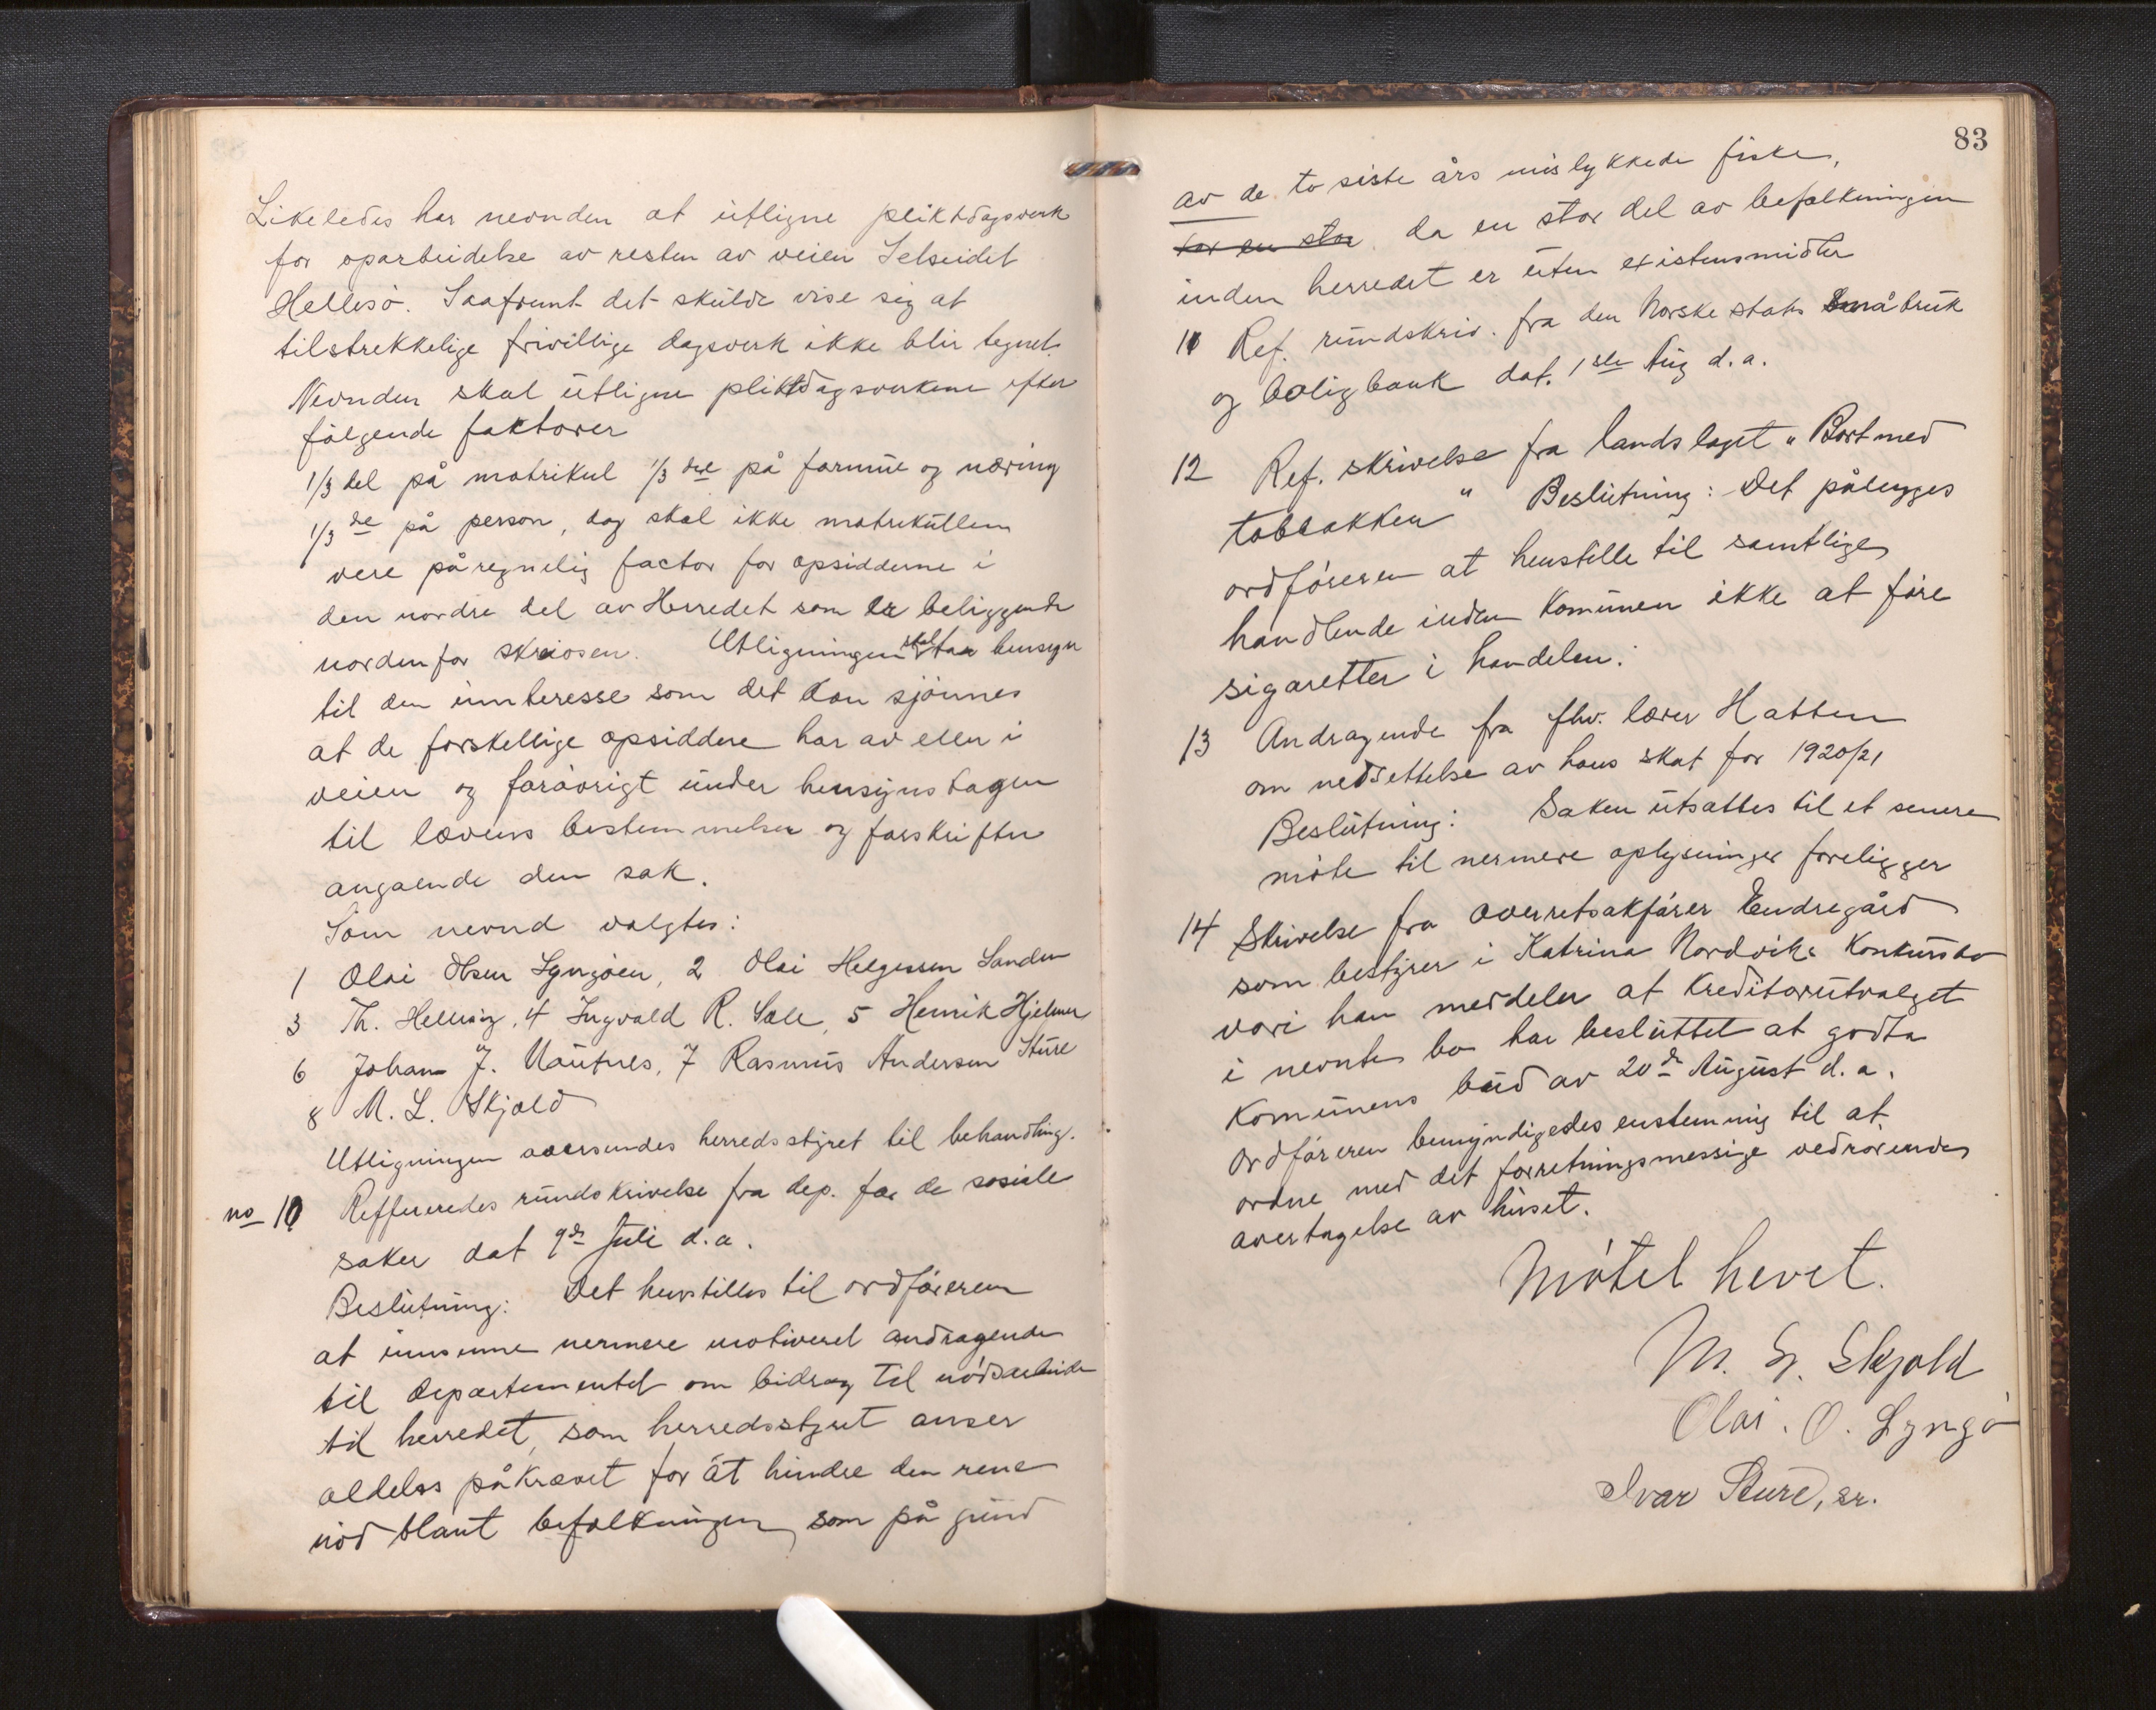 Likeledes har nevnden at utligne pliktdagsverk
for oparbeidelse av resten av veien Selseidet
Hellesö. Saafremt det skulde vise sig at
tilstrekkelige frivillige dagsverk ikke blir tegnet.
Nevnden skal utligne pliktdagsverkene efter
fölgende faktorer
1/3 del på matrikul 1/3 del på formue og næring
1/3 del på person, dog skal ikke matrikullen
vere påregnelig factor for opsidderne i
den nordre del av Herredet som er beliggende
nordenfor skriosen. Utligningen skal taa hensyn
til den innteresse som det kan sjönnes
at de forskellige opsiddere har av eller i
veien og forövrigt under hensyns tagen
til lovens bestemmelser og forskrifter
angaende den sak.
Som nevnd valgtes:
1 Olai Olsen Lyngöen, 2 Olai Helgesen Sanden
3 Th. Hellesö, 4 Ingvald R. Sæle, 5 Henrik Hjelmer
6 Johan J. Nautnes, 7 Rasmus Andersen Sture
8 M. L. Skjold
Utligningen oversendes herredsstyret til behandling.
no 10 Reffereredes rundskrivelse fra dep. for de sosiale
saker dat 9de Juli d.a.
Beslutning: Det henstilles til ordföreren
at innsenne nermere motiveret andragende
til departementet om bidrag til nödsarbeide
til herredet, som herredsstyret anser
aldeles påkrævet for åt hindre den rene
nöd blant befolkningen, som på grund
83
av de to siste års mislykkede fiske,
for en stor da en stor del av befolkningen
inden herredet er uten existensmidler
11 Ref. rundskriv. fra den Norske stats Småbruk
og boligbank dat. 1ste Aug d.a.
12 Ref. skrivelse fra landslaget "Bort med
tobbakken" Beslutning: Det pålegges
ordföreren at henstille til samtlige
handlende inden Komunen ikke at före
sigaretter i handelen.
13 Andragende fra fhv. lærer Hatten
om nedsettelse av hans skat for 1920/21
Beslutning: Saken utsattes til et senere
möte til nermere oplysninger foreligger
14 Skrivelse fra overretsakförer Endregård
som bestyrer i Katrina Nordviks Konkursbo
vori han meddeler at Kreditorutvalget
i nevnte bo har besluttet at godta
Komunens bud av 20de August d.a.
Ordföreren bemyndigedes enstemmig til at
ordne med det forretningsmessige vedrörende
overtagelse av huset.
Mötet hevet.
M. L. Skjold
Olai. O. Lyngö
Ivar Sture, sr.